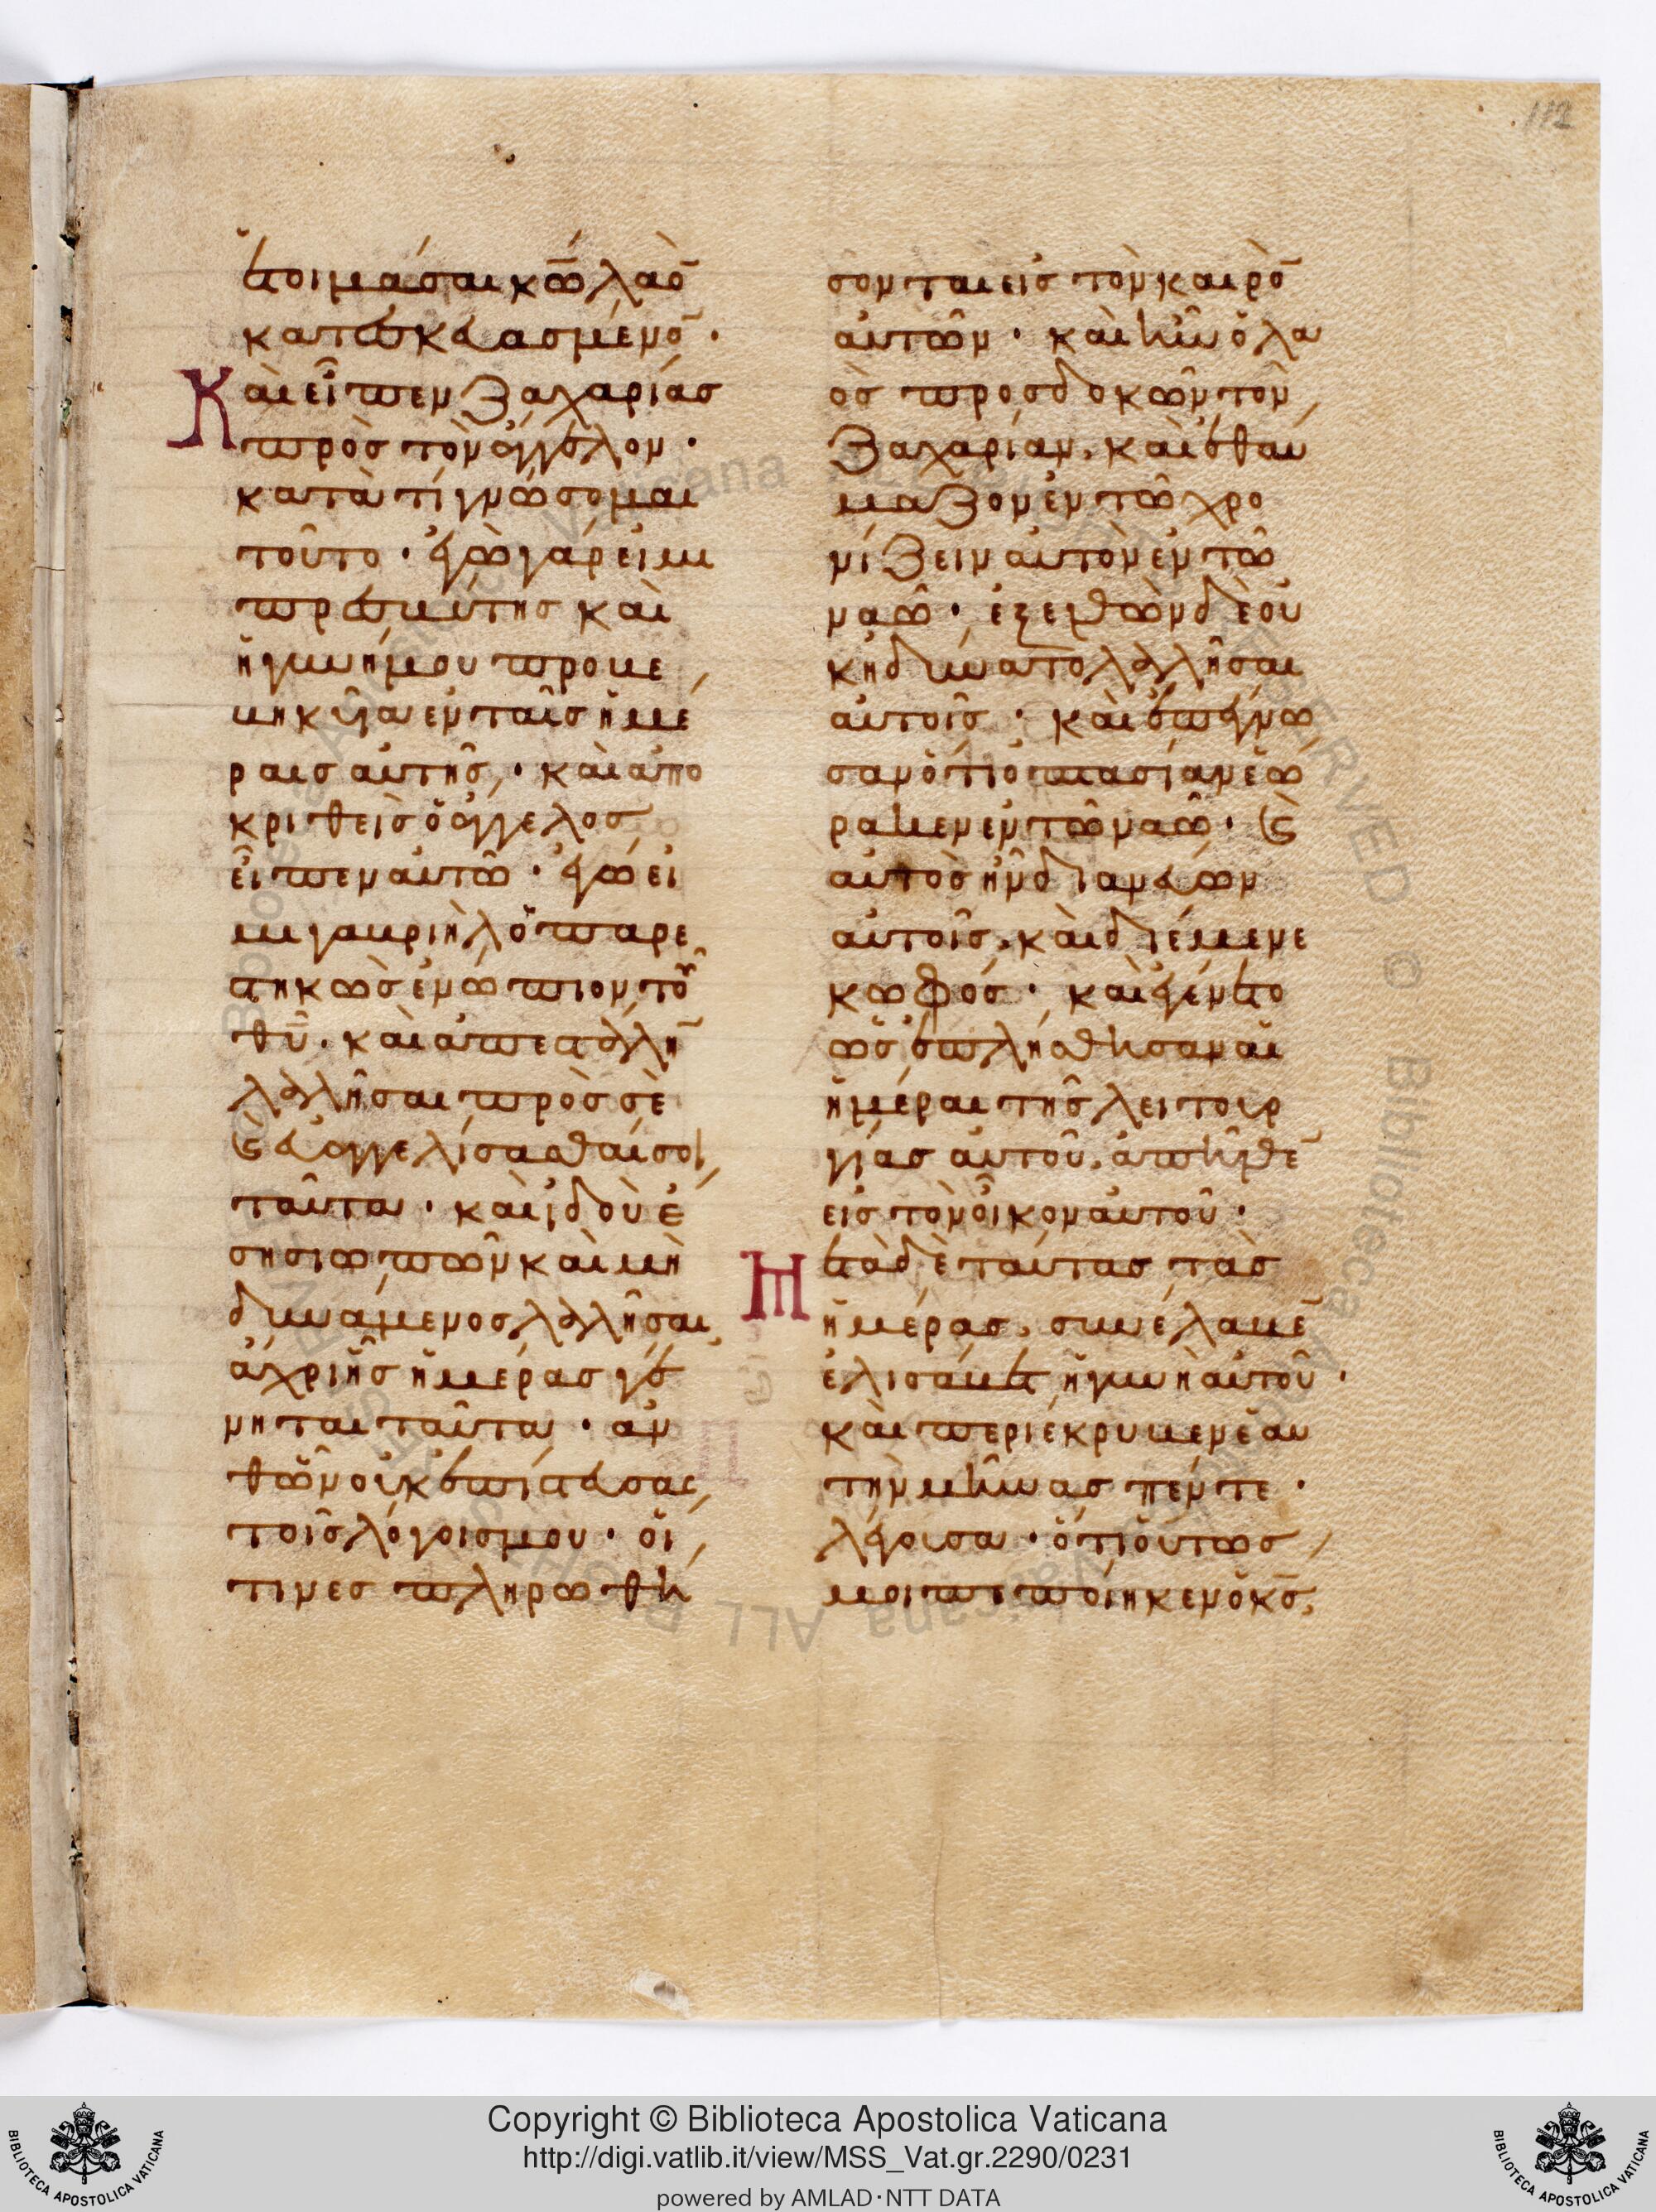 112
ἑτοιμάσαι κω̅ λαὸ̅
κατεσκευασμένο̅ ·
Καὶ εἶπεν Ζαχαρίας
πρὸς τὸν ἄγγελον ·
κατὰ τί γνώσομαι
τοῦτο · ἐγὼ γάρ εἰμι
πρεσβύτης καὶ
ἡ γυνή μου προβε
βηκυῖα ἐν ταῖς ἡμέ
ραις αὐτῆς · καὶ ἀπο
κριθεὶς ὁ ἄγγελος
εἶπεν αὐτῶ · ἐγώ εἰ
μι γαβριὴλ ὁ παρε
στηκὼς ἐνώπιον τοῦ
θυ̅ · καὶ ἀπεστάλη̅
λαλῆσαι πρὸς σὲ
ϗ εὐαγγελίσασθαί σοι
ταῦτα · καὶ ἰδοὺ ἔ
ση σιωπῶν καὶ μὴ
δυνάμενος λαλῆσαι
ἄχρι ἧς ἡμέρας γέ
νηται ταῦτα · ἀν
θ ὧν οὐκ ἐπίστευσας
τοῖς λόγοις μου · οἵ
τινες πληρωθή
σονται εἰς τὸν καιρὸ̅
αὐτῶν · καὶ ἦν ὁ λα
ὸς προσδοκῶν τὸν
Ζαχαρίαν, καὶ ἐθαύ
μαζον ἐν τῶ χρο
νίζειν αὐτὸν ἐν τῶ
ναῶ · ἐξελθὼν δὲ οὐ
κ ἠδύνατο λαλῆσαι
αὐτοῖς · καὶ ἐπέγνω
σαν ὅτι ὀπτασίαν ἑώ
ρακεν ἐν τῶ ναῶ · ϗ
αὐτὸς ἦν διανεύων
αὐτοῖς, καὶ διέμενε
κωφός · καὶ ἐγένετο
ὡς ἐπλήσθησαν αἱ
ἡμέραι τῆς λειτουρ
γίας αὐτοῦ, ἀπῆλθε̅
εἰς τὸν οἶκον αὐτοῦ ·
Μετὰ δὲ ταύτας τὰς
ἡμέρας, συνέλαβε̅
ἐλισάβετ ἡ γυνὴ αὐτοῦ ·
καὶ περιέκρυβεν ἑαυ
τὴν μῆνας πέντε ·
λέγουσα · ὅτι οὕτως
μοι πεποίηκεν ὁ κς̅,
Copyright © Biblioteca Apostolica Vaticana
http://digi.vatlib.it/view/MSS_Vat.gr.2290/0231
powered by AMLAD·NTT DATA
BIBLIOTECA APOSTOLICA VATICANA
BIBLIOTECA APOSTOLICA VATICANA